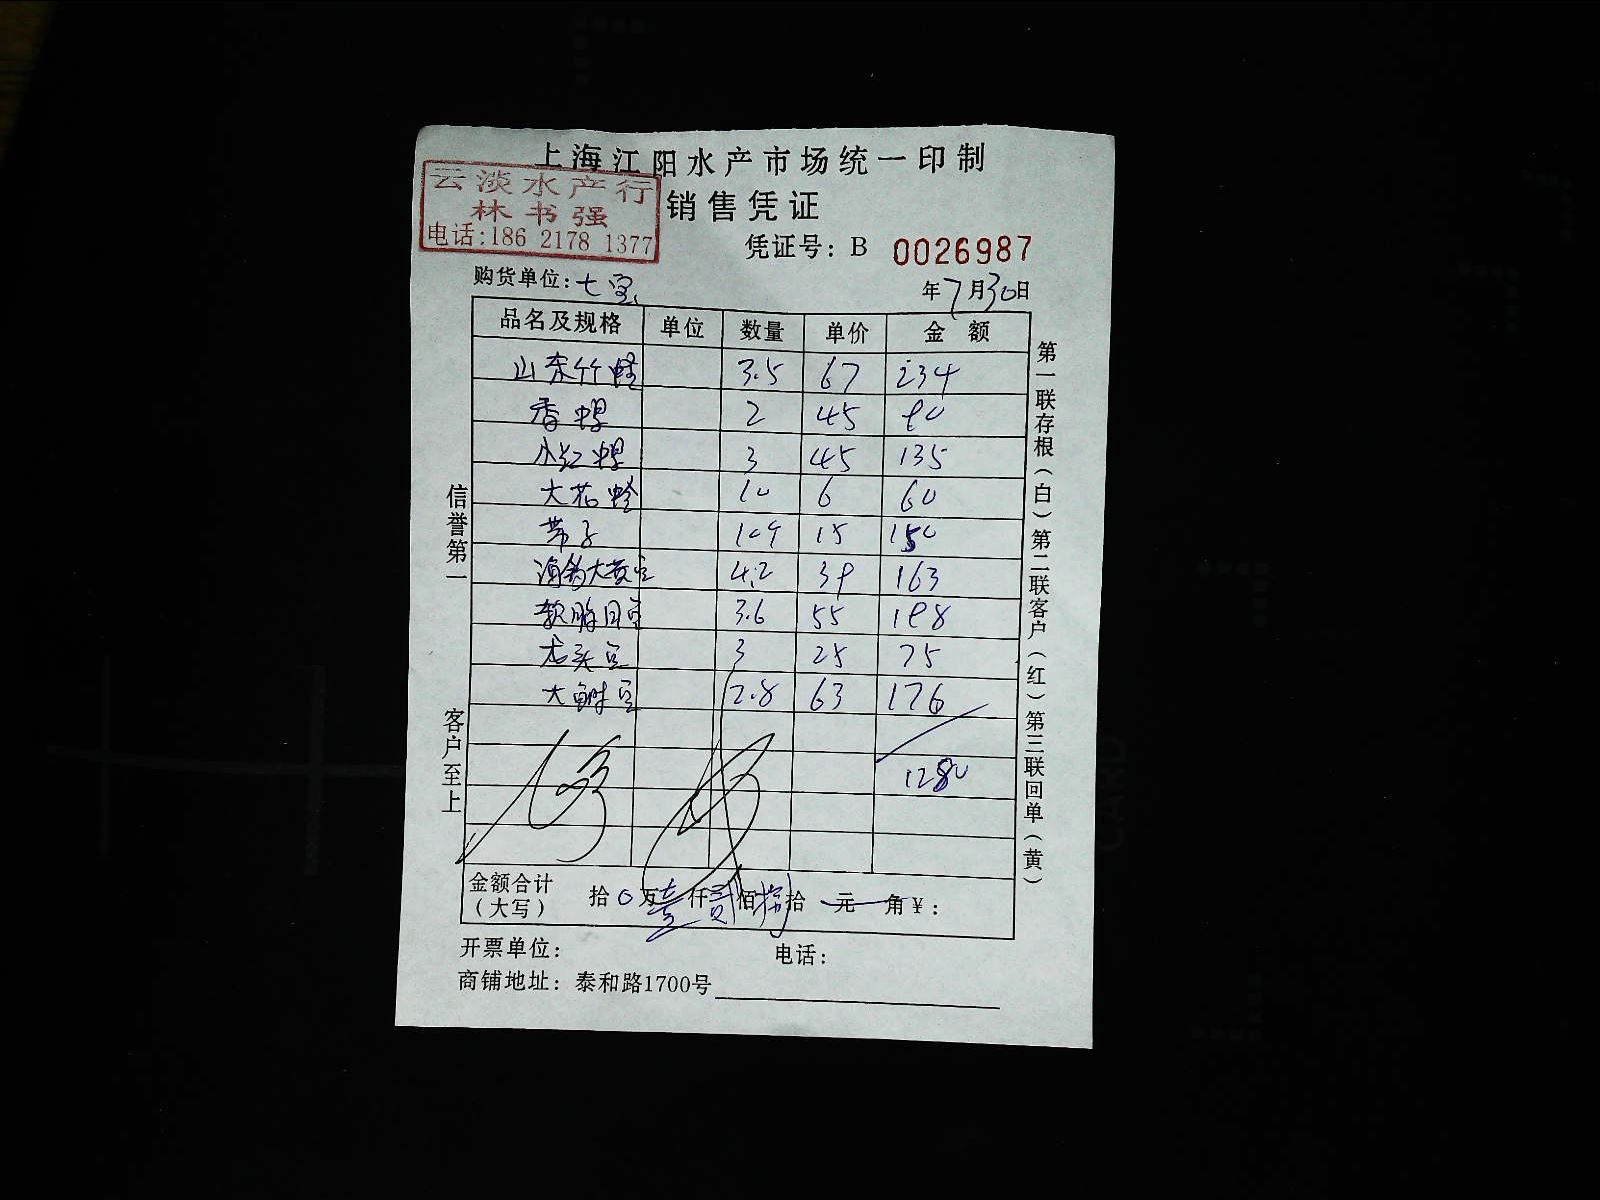 上海江阳水产市场统一印制
云淡水产行
林书强
电话:186 2178 1377
销售凭证
凭证号: B 0026987
购货单位:七宝 年7月30日
品名及规格 单位 数量 单价 金 额
山东竹蛏 3.5 67 234
香螺 2 45 90
小红螺 3 45 135
大花蛤 10 6 60
带子 10.9 15 150
海参大黄豆 4.2 39 163
3.6 55 198
3 25 75
2.8 63 176
1280
金额合计
(大写) 拾0万壹仟贰佰捌拾 元 角¥:
开票单位: 电话:
商铺地址: 泰和路1700号
信誉第一 客户至上
第一联存根(白)第二联客户(红)第三联回单(黄)